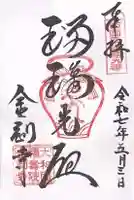 奉拝
令和七年五月三日
瑠璃光殿
金剛寺